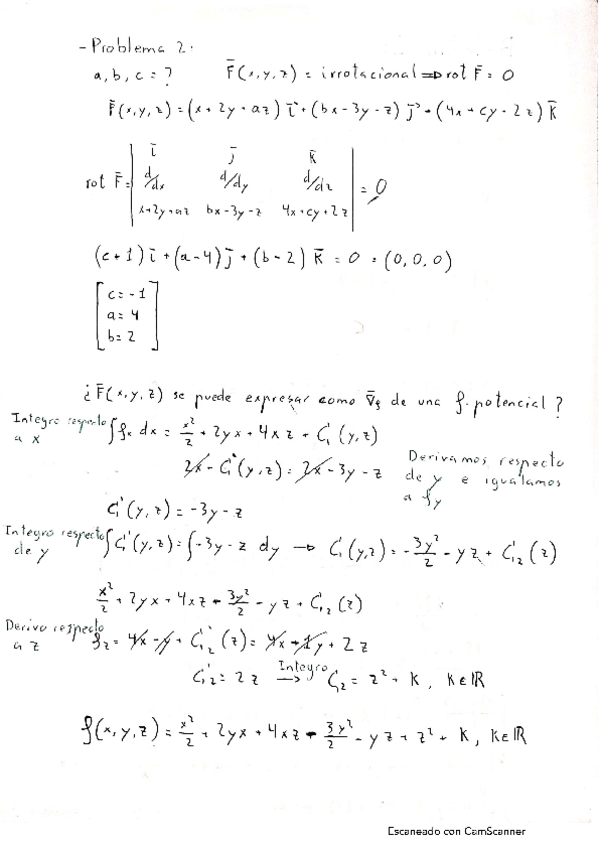 - Problema 2.
a, b, c = ? F̄(x,y,z) = irrotacional ⇒ rot F̄ = 0
F̄(x,y,z) = (x + 2y + az) ī + (bx - 3y - z) j̄ + (4x + cy - 2z) k̄
ī j̄ k̄
rot F̄ = d/dx d/dy d/dz = 0
x+2y+az bx-3y-z 4x+cy+2z
(c+1) ī + (a-4) j̄ + (b-2) k̄ = 0 = (0,0,0)
c = -1
a = 4
b = 2
¿F̄(x,y,z) se puede expresar como ∇̄f de una f. potencial?
Integro respecto a x ∫fx dx = x²/2 + 2yx + 4xz + C₁(y,z)
2x - C₁'(y,z) = 2x - 3y - z Derivamos respecto de y e igualamos a fy
C₁'(y,z) = -3y - z
Integro respecto de y ∫C₁'(y,z) = ∫-3y - z dy → C₁(y,z) = -3y²/2 - yz + C₂(z)
x²/2 + 2yx + 4xz - 3y²/2 - yz + C₂(z)
Derivo respecto a z fz = 4x - y + C₂'(z) = 4x - 1y + 2z
C₂' = 2z Integro → C₂ = z² + K, K∈ℝ
f(x,y,z) = x²/2 + 2yx + 4xz - 3y²/2 - yz + z² + K, K∈ℝ
Escaneado con CamScanner